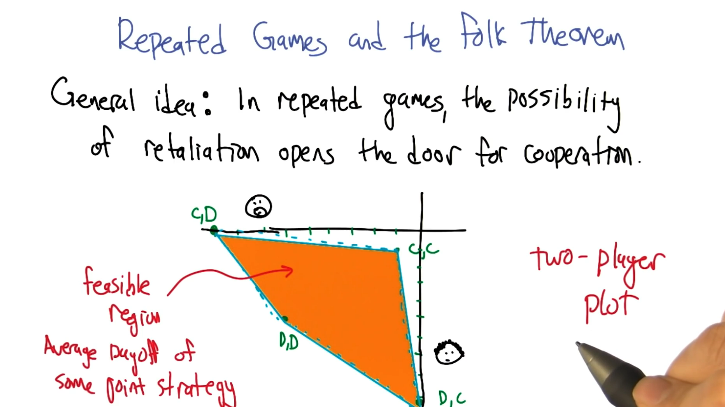 Repeated Games and the Folk Theorem
General idea: In repeated games, the possibility
of retaliation opens the door for cooperation.
C,D
C,C
feasible
region
Average payoff of
some joint strategy
D,D
D,C
two-player
plot